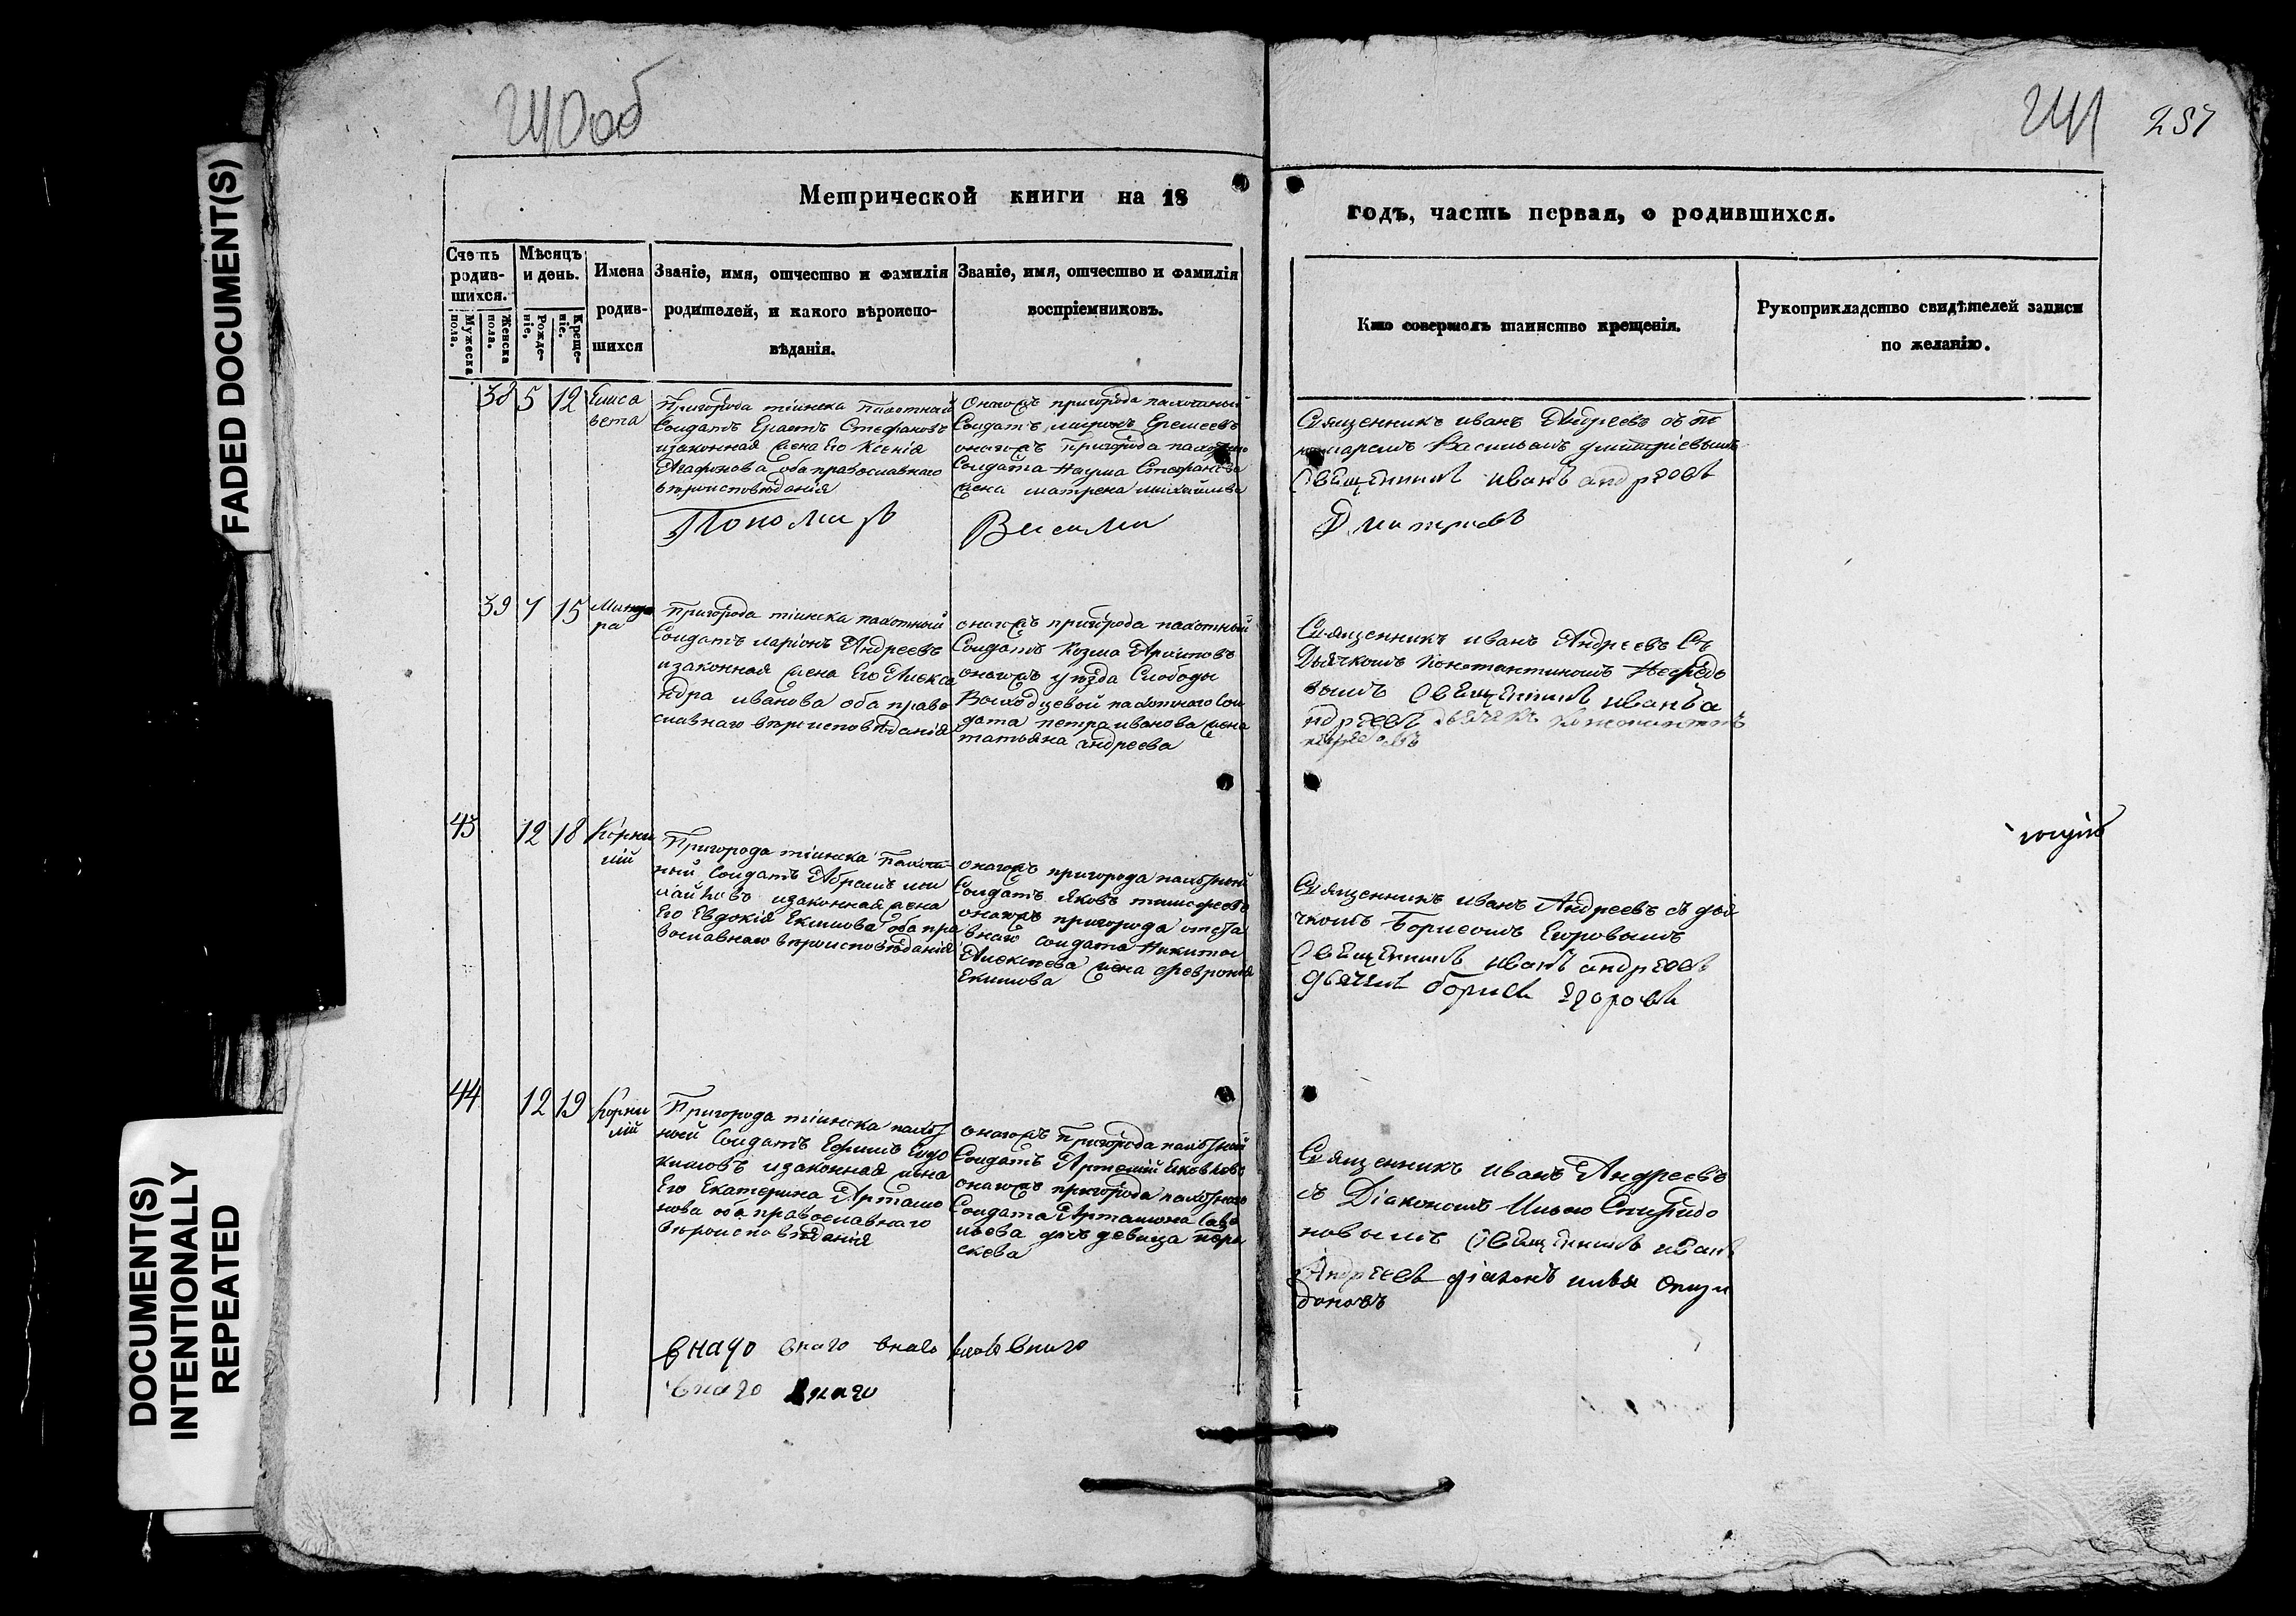 FADED DOCUMENT(S)
DOCUMENT(S)
INTENTIONALLY
REPEATED
257
Метрической книги на 18
годъ, часть первая, о родившихся.
Счетъ
родив-
шихся.
Мужеска
пола.
Женска
пола.
Мѣсяцъ
и день.
Рожде-
ніе.
Креще-
ніе.
Имена
родив-
шихся
Званіе, имя, отчество и фамилія
родителей, и какого вѣроиспо-
вѣданія.
Званіе, имя, отчество и фамилія
воспріемниковъ.
Кто совершалъ таинство крещенія.
Рукоприкладство свидѣтелей записи
по желанію.
38 5 12 Елиса
вета
Пригорода тіинска пахотный
Солдатъ Ерастъ Стефановъ
изаконная жена Его Ксенія
Агафонова оба православнаго
вѣроисповѣданія
Пономарь
Онагожъ пригорода пахотный
Солдатъ миронъ Еремеевъ
онагожъ пригорода
Солдата Наума Стефанова
жена матрена михайлова
Васили
Священникъ иванъ Андреевъ съ по
номаремъ Васильемъ дмитріевымъ
Священникъ иванъ андреевъ
Дмитриевъ
39 7 15
ра
Пригорода тіинска пахотный
Солдатъ ларіонъ Андреевъ
изаконная жена Его Алекса
ндра иванова оба право
славнаго вѣроисповѣданія
онагожъ пригорода пахотный
Солдатъ Козма Архиповъ
онагожъ уѣзда Слободы
пахотнаго Сол
дата петра иванова жена
татьяна андреева
Священникъ иванъ Андреевъ Съ
Дьячкомъ Константиномъ
вымъ Священникъ иванъ а
ндреевъ дьячекъ Константинъ
43 12 18 Корни
лій
Пригорода тіинска пахот
ный Солдатъ Абрамъ ми
хайловъ изаконная жена
Его Евдокія Екимова оба пра
вославнаго вѣроисповѣданія
онагожъ пригорода пахотный
Солдатъ яковъ тимофеевъ
онагожъ пригорода отста
внаго солдата Никиты
Алексѣева жена февронія
Екимова
Священникъ иванъ Андреевъ съ дья
чкомъ Борисомъ Егоровымъ
Священникъ иванъ андреевъ
дьячекъ борисъ Егоровъ
44 12 19 Корни
лій
Пригорода тіинска пахот
ный Солдатъ Ефимъ Евдо
кимовъ изаконная жена
Его Екатерина Артамо
нова оба православнаго
вѣроисповѣданія
онагожъ пригорода пахотный
Солдатъ Артемій яковлевъ
онагожъ пригорода пахотнаго
Солдата Артамона Саве
льева дочь девица пара
скева
Священникъ иванъ Андреевъ
съ Діакономъ Ильею Спиридо
новымъ Священникъ иванъ
Андреевъ діаконъ илья Спири
доновъ